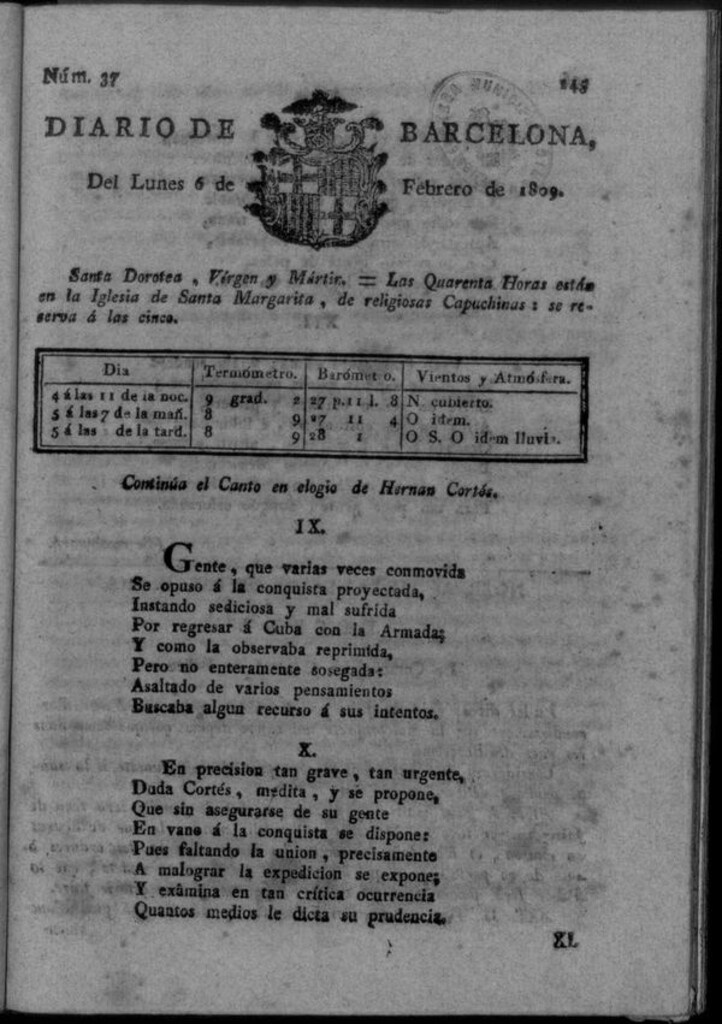 Núm. 37
DIARIO DE BARCELONA,
Del Lunes 6 de Febrero de 1809.
Santa Dorotea, Vírgen y Mártir. = Las Quarenta Horas están
en la Iglesia de Santa Margarita, de religiosas Capuchinas: se re-
serva á las cinco.
Dia Termómetro. Barómetro. Vientos y Atmósfera.
4 á las 11 de la noc. 9 grad. 2 27 p. 11 l. 8 N cubierto.
5 á las 7 de la mañ. 8 9 27 11 4 O idem.
5 á las de la tard. 8 9 28 1 O S. O idem lluvia.
Continúa el Canto en elogio de Hernan Cortés.
IX.
Gente, que varias veces conmovida
Se opuso á la conquista proyectada,
Instando sediciosa y mal sufrida
Por regresar á Cuba con la Armada;
Y como la observaba reprimida,
Pero no enteramente sosegada:
Asaltado de varios pensamientos
Buscaba algun recurso á sus intentos.
X.
En precision tan grave, tan urgente,
Duda Cortés, medita, y se propone,
Que sin asegurarse de su gente
En vano á la conquista se dispone:
Pues faltando la union, precisamente
A malograr la expedicion se expone;
Y exâmina en tan crítica ocurrencia
Quantos medios le dicta su prudencia.
XI.